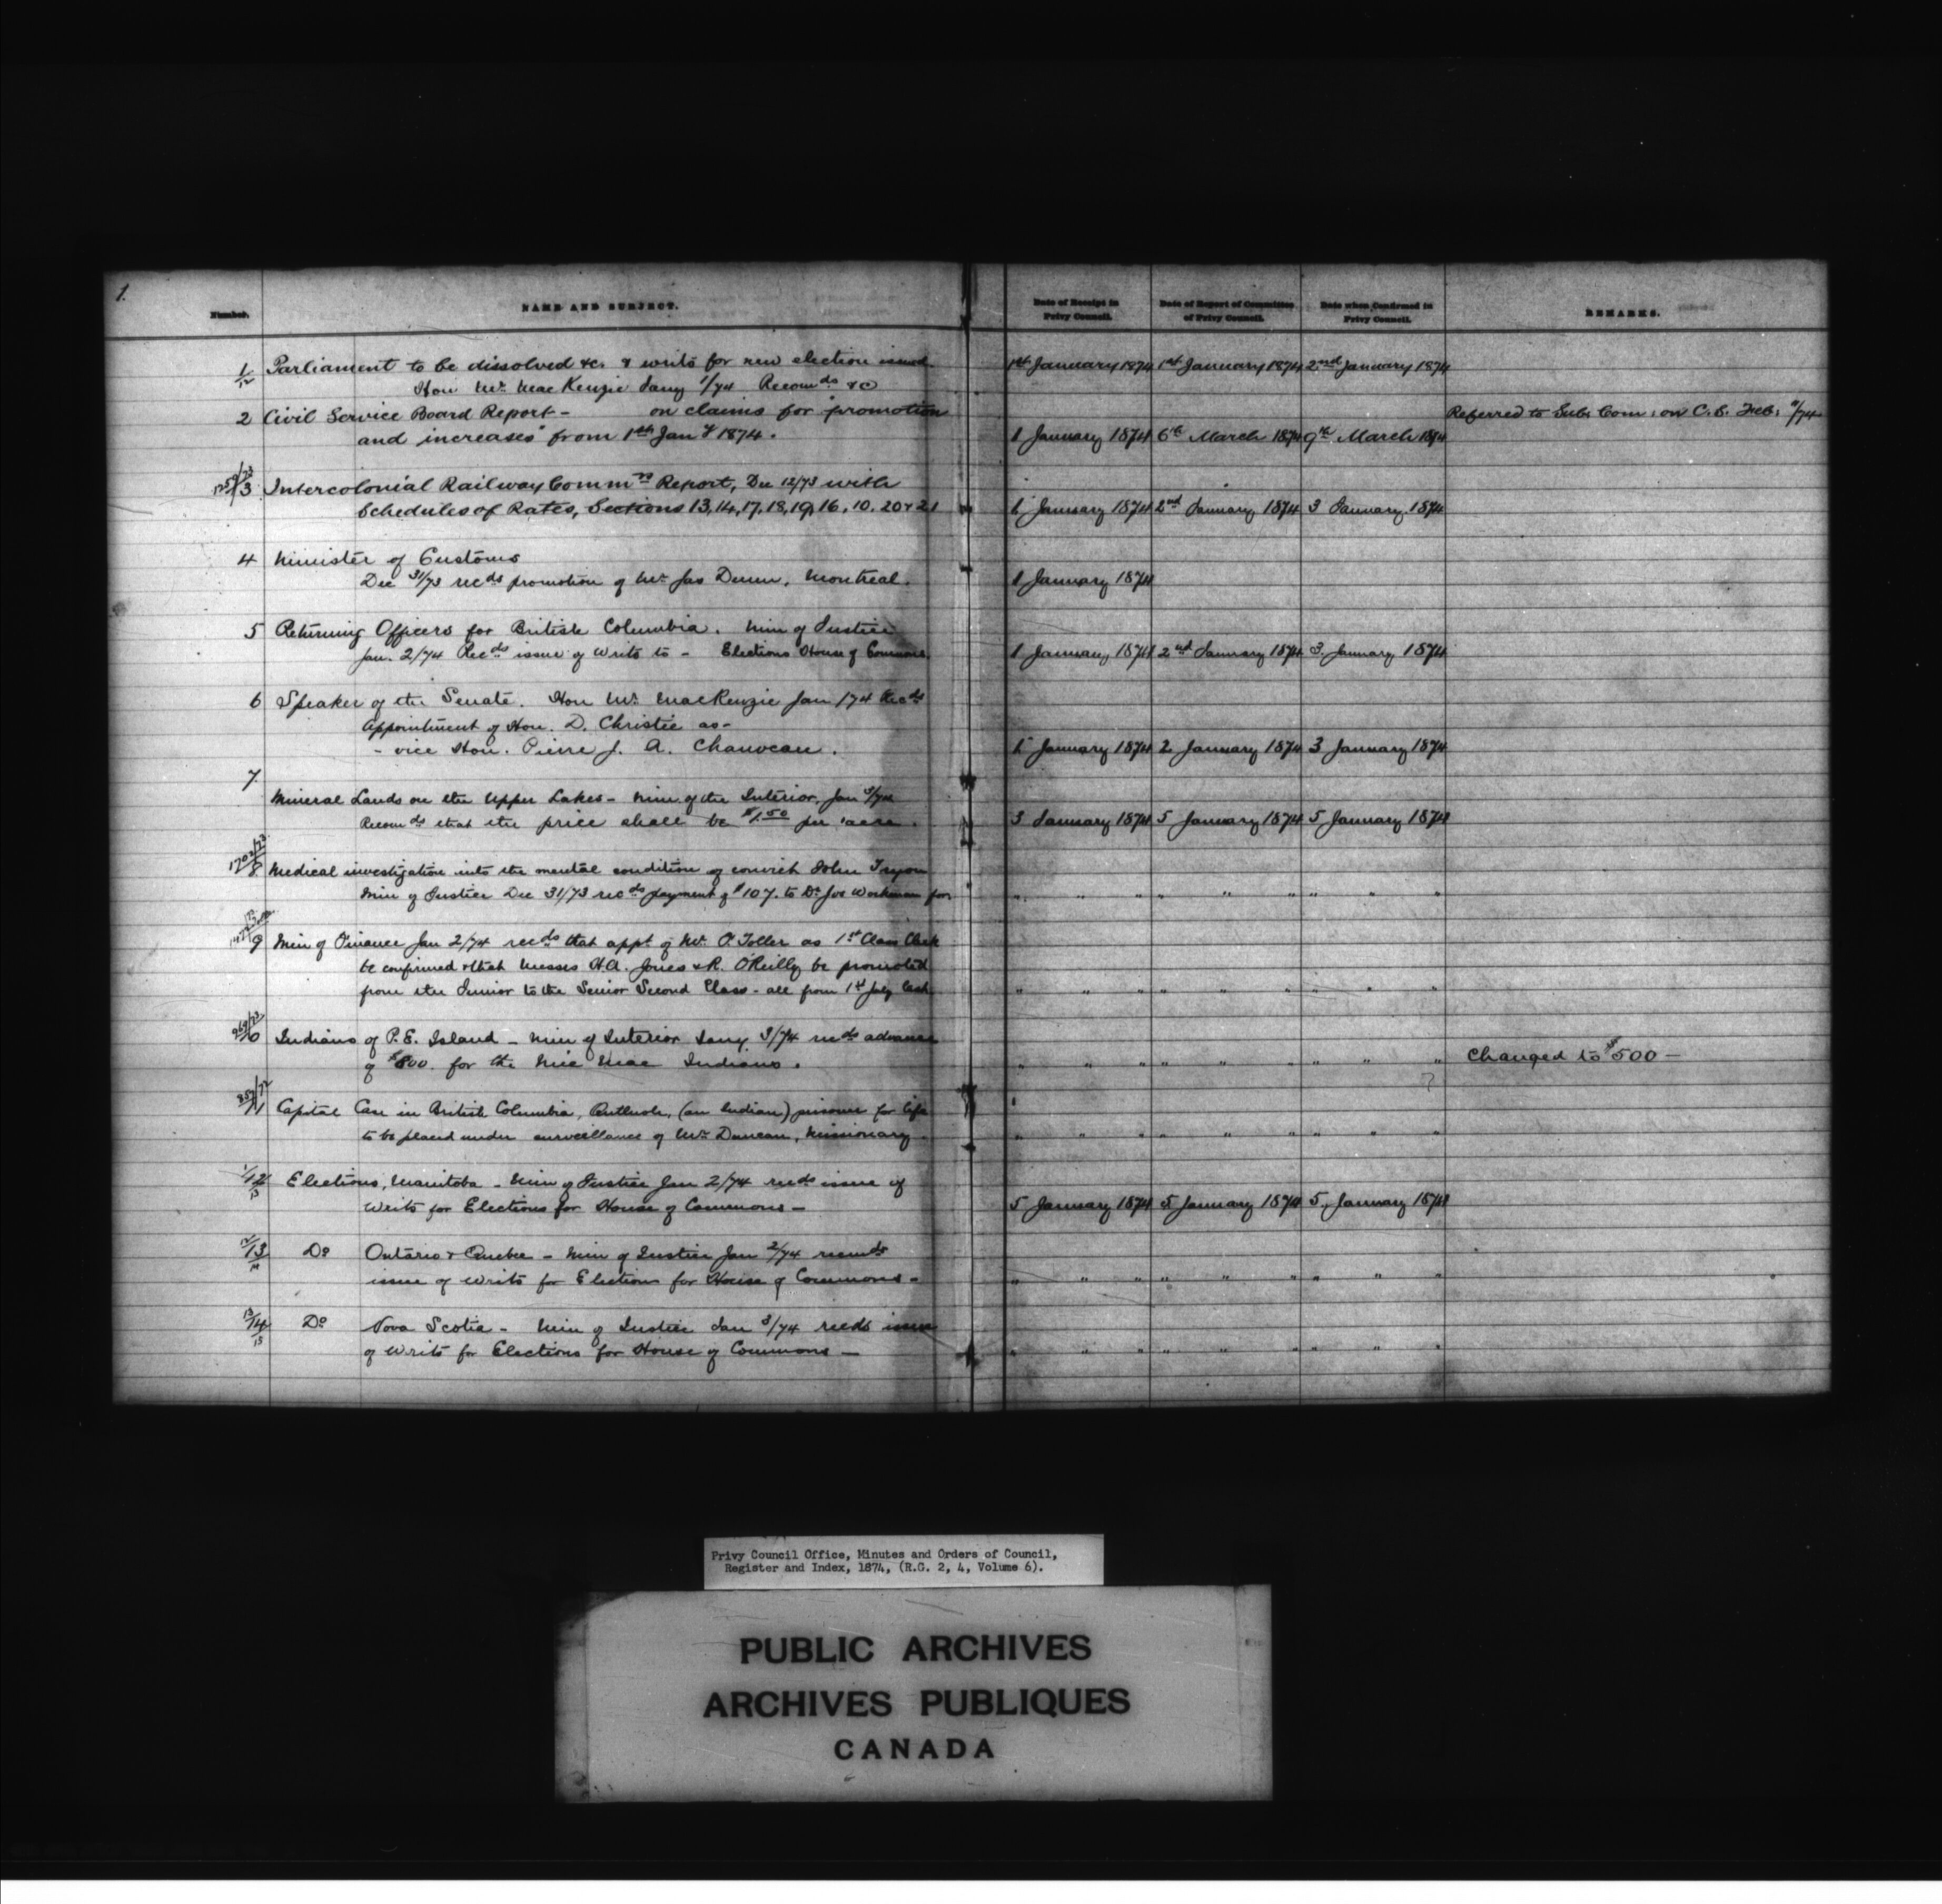 1.
Number.
NAME AND SUBJECT.
Date of Receipt in Privy Council.
Date of Report of Committee of Privy Council.
Date when Confirmed in Privy Council.
REMARKS.
1/12 Parliament to be dissolved &c. & writs for new election issued
Hon Mr. MacKenzie Jany 1/74 Recomds &c 1st January 1874 1st January 1874 2nd January 1874
2 Civil Service Board Report - on claims for promotion Referred to Sub. Com: on C.S. Feb:
and increases from 1st Jany 1874. 1 January 1874 6th March 1874 9th March 1874
3 Intercolonial Railway Commrs Report, Dec 12/73 with
Schedules of Rates, Sections 13, 14, 17, 18, 19, 16, 10, 20 & 21 1 January 1874 2nd January 1874 3 January 1874
4 Minister of Customs
Dec 31/73 recds promotion of Mr. Jas Dunn, Montreal. 1 January 1874
5 Returning Officers for British Columbia. Min of Justice
Jan. 2/74 Recds issue of Writs to - Elections House of Commons. 1 January 1874 2nd January 1874 3 January 1874
6 Speaker of the Senate. Hon Mr. MacKenzie Jan 1/74 Recds
Appointment of Hon. D. Christie as -
- vice Hon. Pierre J. A. Chauveau. 1 January 1874 2 January 1874 3 January 1874
7 Mineral Lands on the Upper Lakes - Min. of the Interior, Jan 3/74
Recomds that the price shall be $1.50 per acre. 3 January 1874 5 January 1874 5 January 1874
8 Medical investigation into the mental condition of convict John Tryon
Min of Justice Dec 31/73 recds payment of $107. to Dr Jos Workman for " " " " " " " " "
9 Min of Finance Jan 2/74 recds that appt of Mr. O. Toller as 1st Class Clerk
be confirmed & that Messrs H.A. Jones & R. O'Reilly be promoted
from the Junior to the Senior Second Class - all from 1st July last. " " " " " " " " "
10 Indians of P. E. Island - Min of Interior Jany 3/74 recds advance
of $800. for the Mic Mac Indians. " " " " " " " " " Changed to $500 -
?
11 Capital Case in British Columbia, (an Indian) prisoner for life
to be placed under surveillance of Mr. Duncan, Missionary. " " " " " " " " "
1/12/13 Elections, Manitoba - Min of Justice Jan 2/74 recds issue of
Writs for Elections for House of Commons - 5 January 1874 5 January 1874 5 January 1874
12/13/14 Do Ontario & Quebec - Min of Justice Jan 2/74 recmds
issue of Writs for Elections for House of Commons - " " " " " " " " "
13/14/15 Do Nova Scotia - Min of Justice Jan 3/74 recds issue
of Writs for Elections for House of Commons - " " " " " " " " "
Privy Council Office, Minutes and Orders of Council,
Register and Index, 1874, (R.G. 2, 4, Volume 6).
PUBLIC ARCHIVES
ARCHIVES PUBLIQUES
CANADA